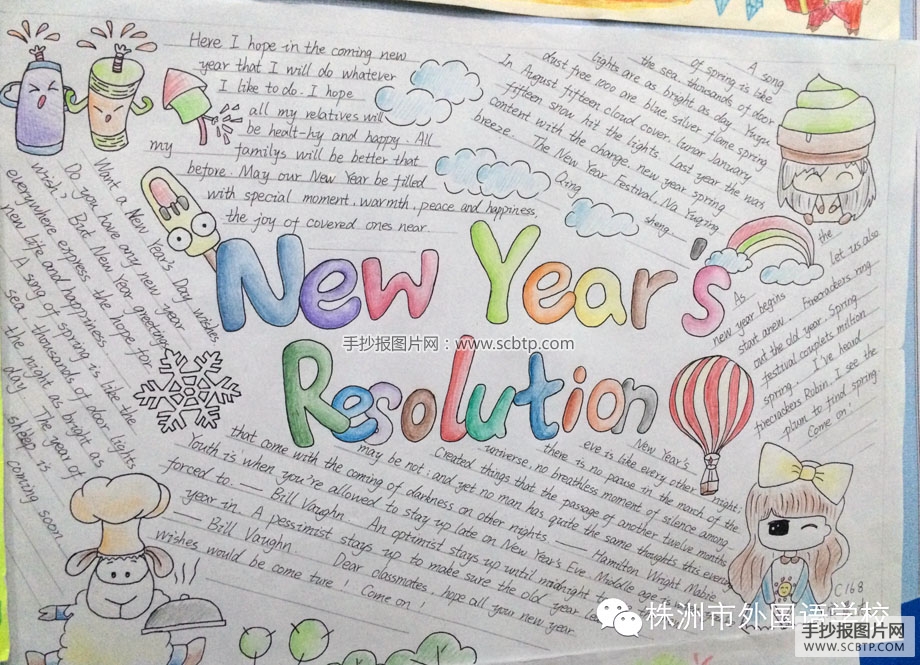 Here I hope in the coming new
year that I will do whatever
I like to do. I hope
all my relatives will
be healt-hy and happy. All
my familys will be better that
before. May our New Year be filled
with special moment, warmth, peace and happiness,
the joy of covered ones near
A song
of spring is like
the sea, thousands of door
lights are as bright as day. Yuyu
dust free, 1000 are blue, silver flame spring
In August fifteen cloud cover, lunar January
fifteen snow hit the lights. Last year the was
content with the change, new year spring
breeze. The New Year Festival, Na Xuging
Qing
sheng
Want a New Year's Day wishes
Do you have any new year
wish, But New Year greetings
everywhere express the hope for
new bite and happiness.
A song of spring is like the
sea thousands of door lights
the night as bright as
day. The year of
sheep is
coming soon
New Year's
Resolution
手抄报图片网：www.scbtp.com
As the
new year begins Let us also
start anew. Firecrackers ring
out the old year. Spring
festival couplets million
spring. I've heard
firecrackers Robin, I see the
plum to find spring
Come on!
New Year's
eve is like every other night;
there is no pause in the march of the
universe, no breathless moment of silence among
Created things that the passage of another twelve months
may be not; and yet no man has quite the same thoughts this evening
that come with the coming of darkness on other nights. — Hamilton Wright Mabie
Youth is when you're allowed to stay up late on New Year's Eve. Middle age is
forced to. — Bill Vaughn. An optimist stays up until midnight to
year in. A pessimist stays up to make sure the old year
— Bill Vaughn. Dear classmates, hope all your new year
wishes would be come ture!
Come on!
C168
株洲市外国语学校
手抄报图片网
WWW.SCBTP.COM